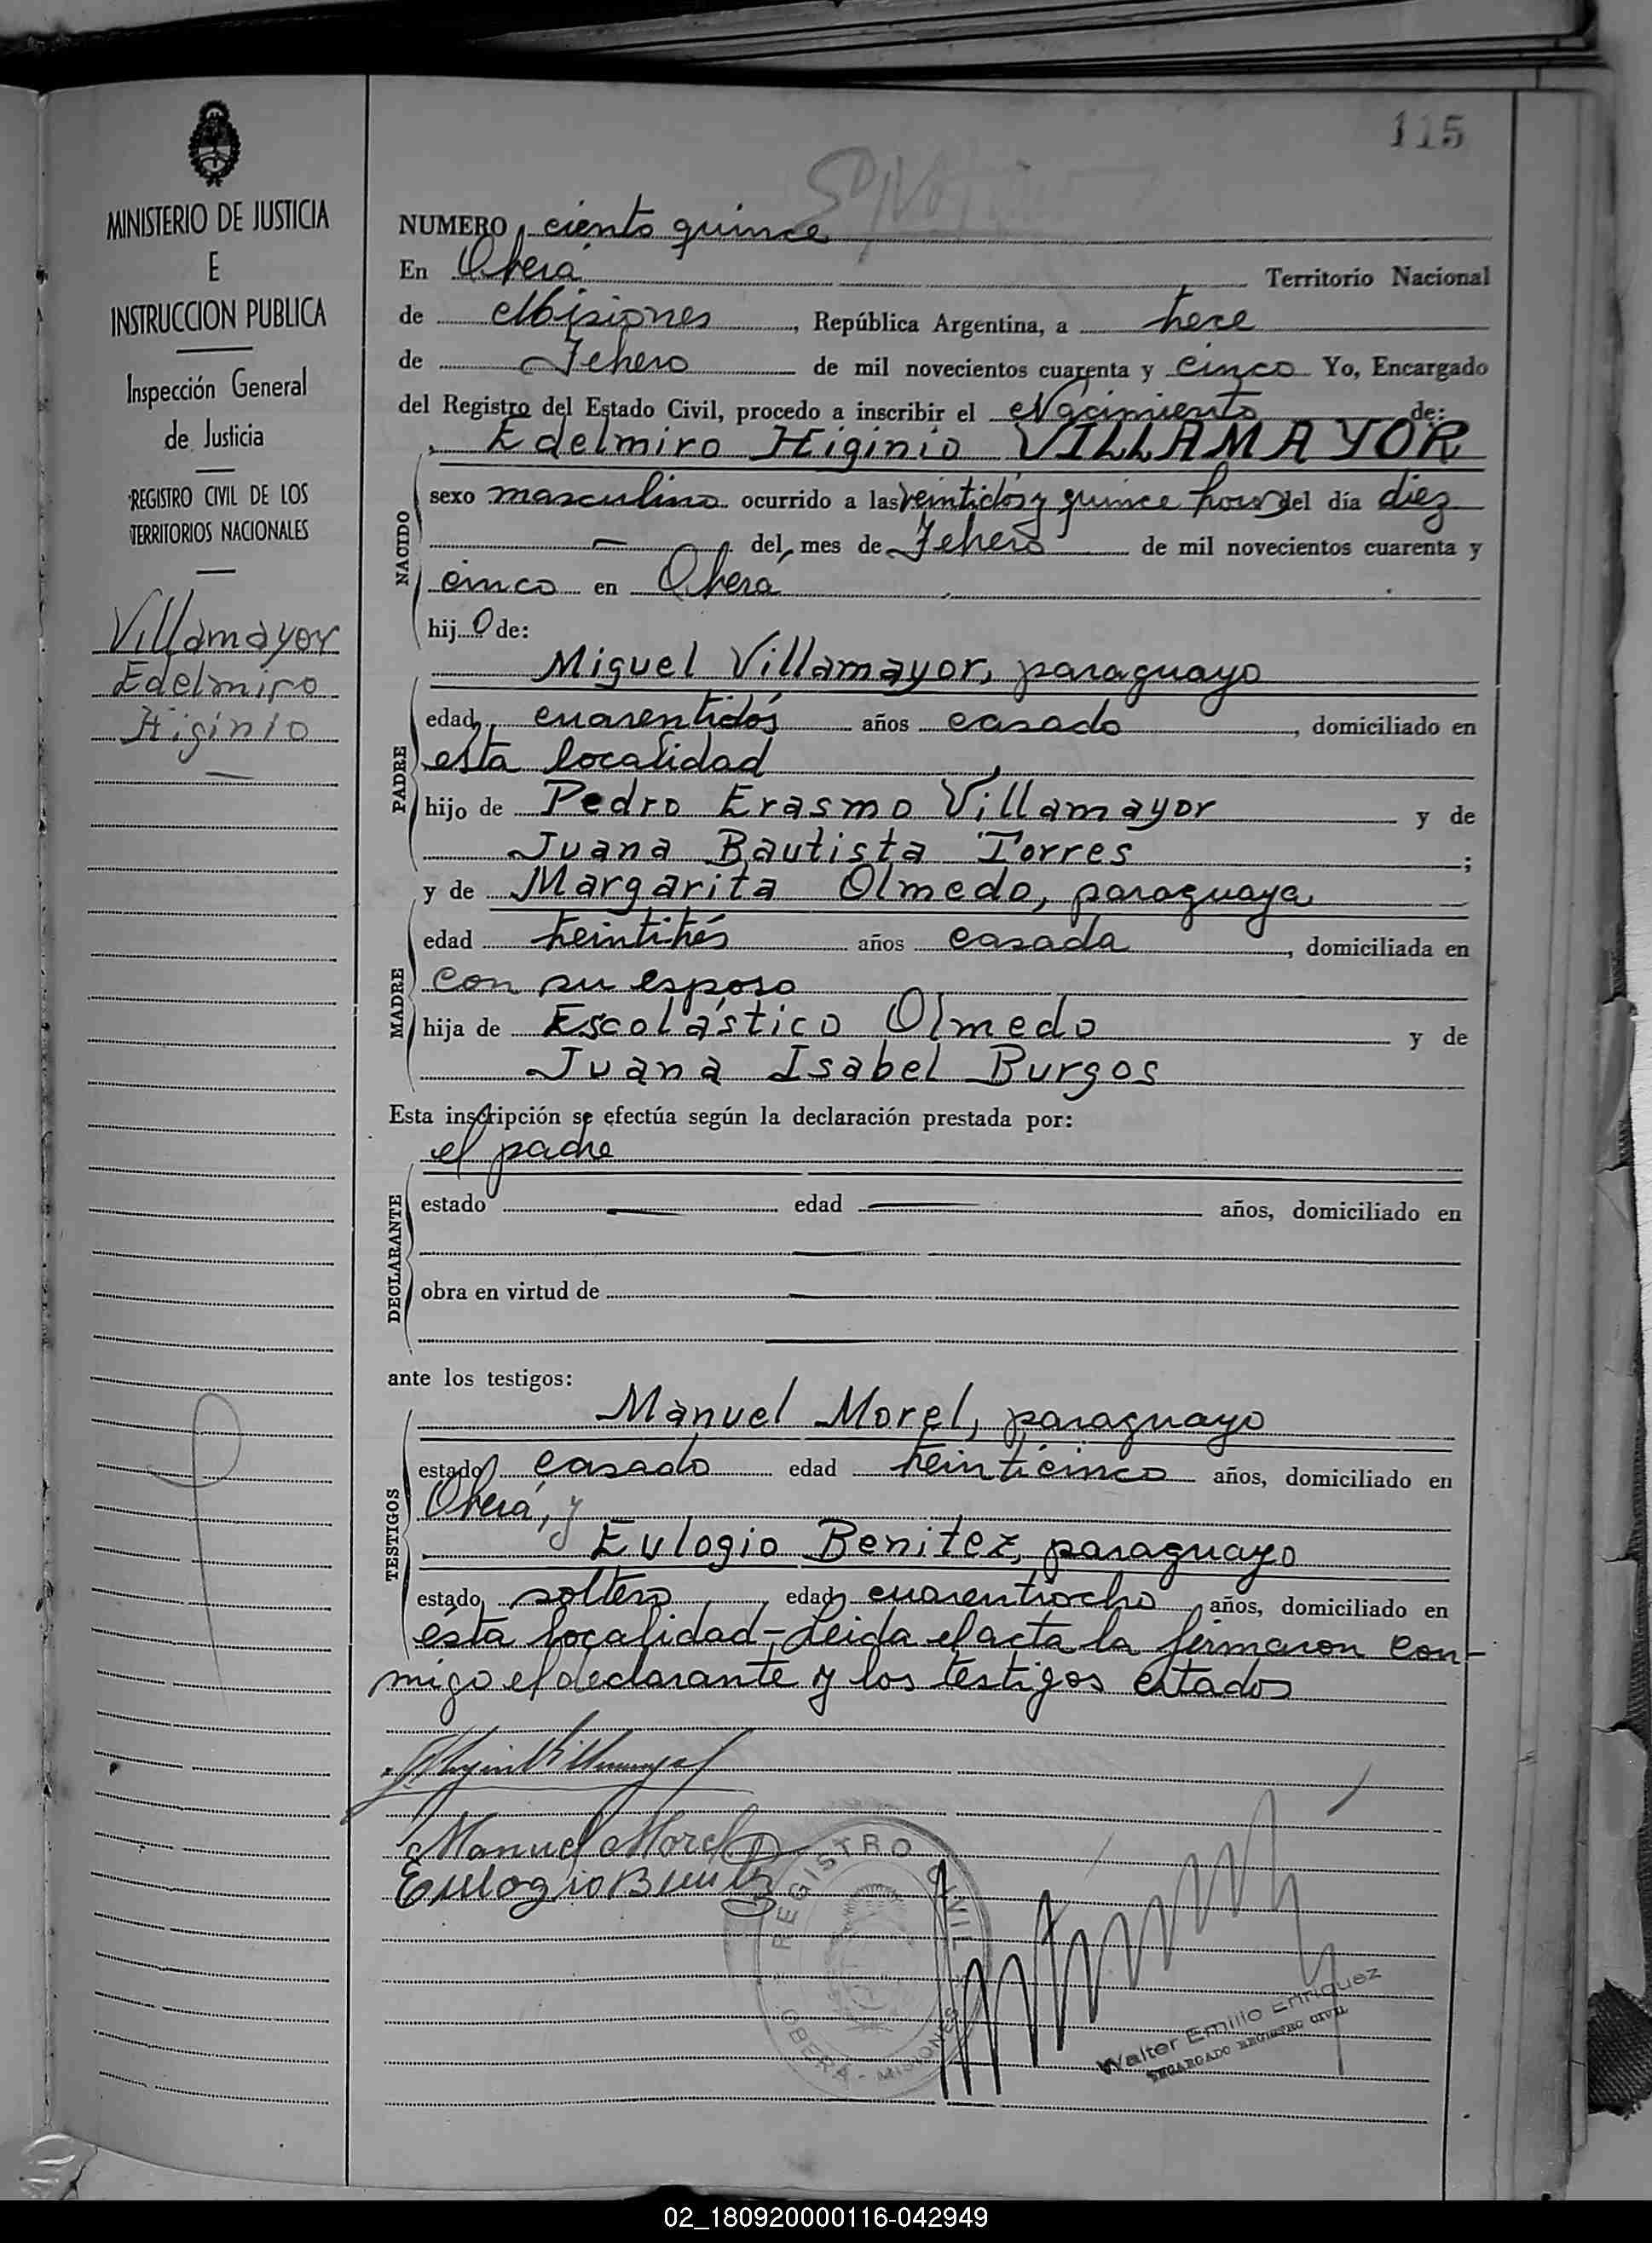 115
MINISTERIO DE JUSTICIA
E
INSTRUCCION PUBLICA
Inspección General
de Justicia
REGISTRO CIVIL DE LOS
TERRITORIOS NACIONALES
Villamayor
Edelmiro
Higinio
NUMERO ciento quince
En Oberá Territorio Nacional
de Misiones, República Argentina, a trece
de Febrero de mil novecientos cuarenta y cinco Yo, Encargado
del Registro del Estado Civil, procedo a inscribir el Nacimiento de:
Edelmiro Higinio VILLAMAYOR
NACIDO
sexo masculino ocurrido a las veintidós y quince horas del día diez
del mes de Febrero de mil novecientos cuarenta y
cinco en Oberá
hijo de:
Miguel Villamayor, paraguayo
PADRE
edad cuarentidós años casado, domiciliado en
esta localidad
hijo de Pedro Erasmo Villamayor y de
Juana Bautista Torres;
y de Margarita Olmedo, paraguaya
MADRE
edad treintitrés años casada, domiciliada en
con su esposo
hija de Escolástico Olmedo y de
Juana Isabel Burgos
Esta inscripción se efectúa según la declaración prestada por:
el padre
DECLARANTE
estado edad años, domiciliado en
obra en virtud de
ante los testigos:
Manuel Morel, paraguayo
TESTIGOS
estado casado edad treinticinco años, domiciliado en
Oberá, y
Eulogio Benitez, paraguayo
estado soltero edad cuarentiocho años, domiciliado en
ésta localidad - Leida el acta la firmaron con-
migo el declarante y los testigos citados
Manuel Morel
Eulogio Benitez
REGISTRO CIVIL
OBERÁ - MISIONES
Walter Emilio Enriquez
ENCARGADO REGISTRO CIVIL
02_180920000116-042949